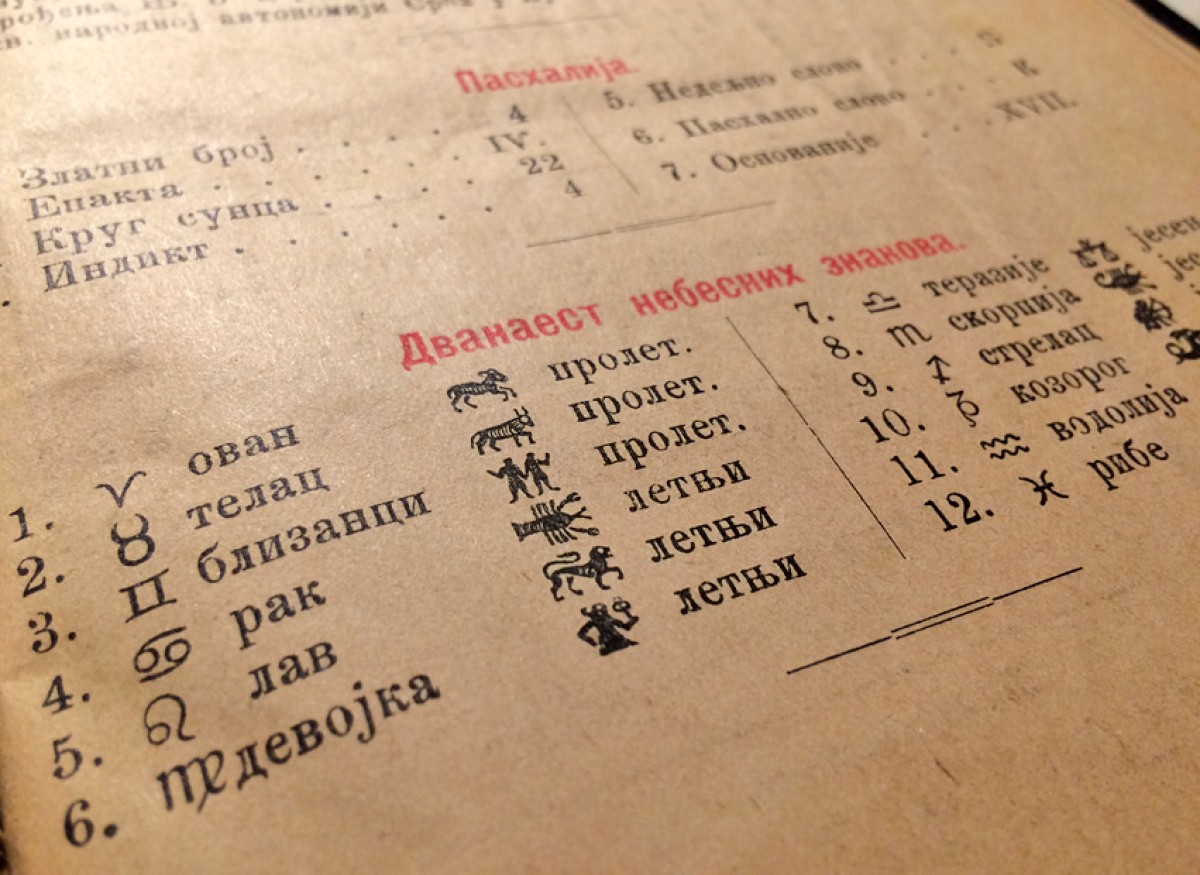 в. народној автономији
Пасхалија.
Златни број . . . . 4
Епакта . . . . . . IV.
Круг сунца . . . . 22
Индикт . . . . . . 4
5. Недељно слово . . .
6. Пасхално слово . . . К
7. Основаније . . . XVII.
Дванаест небесних знакова.
1. ♈ ован пролет.
2. ♉ телац пролет.
3. ♊ близанци пролет.
4. ♋ рак летњи
5. ♌ лав летњи
6. ♍ девојка летњи
7. ♎ теразије јесен
8. ♏ скорпија јес
9. ♐ стрелац
10. ♑ козорог
11. ♒ водолија
12. ♓ рибе